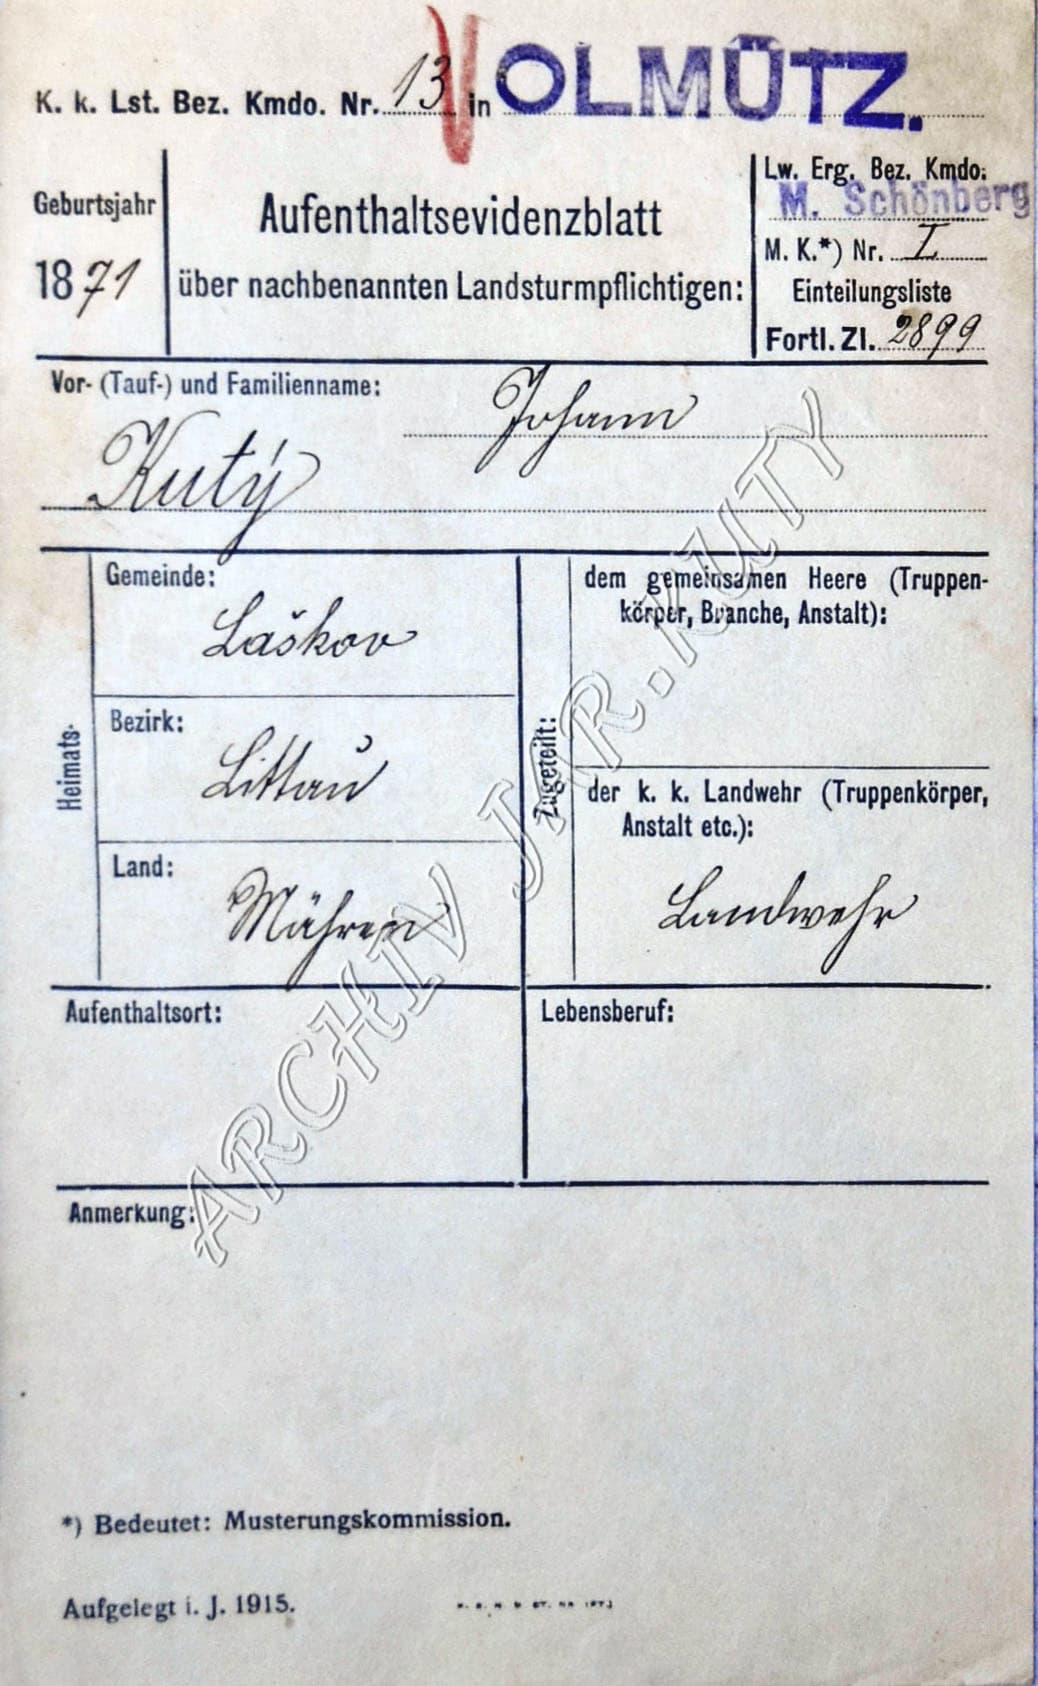 K. k. Lst. Bez. Kmdo. Nr. 13 in OLMÜTZ.
Geburtsjahr
1871
Aufenthaltsevidenzblatt
über nachbenannten Landsturmpflichtigen:
Lw. Erg. Bez. Kmdo:
M. Schönberg
M. K.*) Nr. I
Einteilungsliste
Fortl. Zl. 2899
Vor- (Tauf-) und Familienname:
Johann
Kutý
Heimats-
Gemeinde:
Laškov
Bezirk:
Littau
Land:
Mähren
Zugeteilt:
dem gemeinsamen Heere (Truppen-
körper, Branche, Anstalt):
der k. k. Landwehr (Truppenkörper,
Anstalt etc.):
Landwehr
Aufenthaltsort:
Lebensberuf:
Anmerkung:
*) Bedeutet: Musterungskommission.
Aufgelegt i. J. 1915.
ARCHIV JAR. KUTY